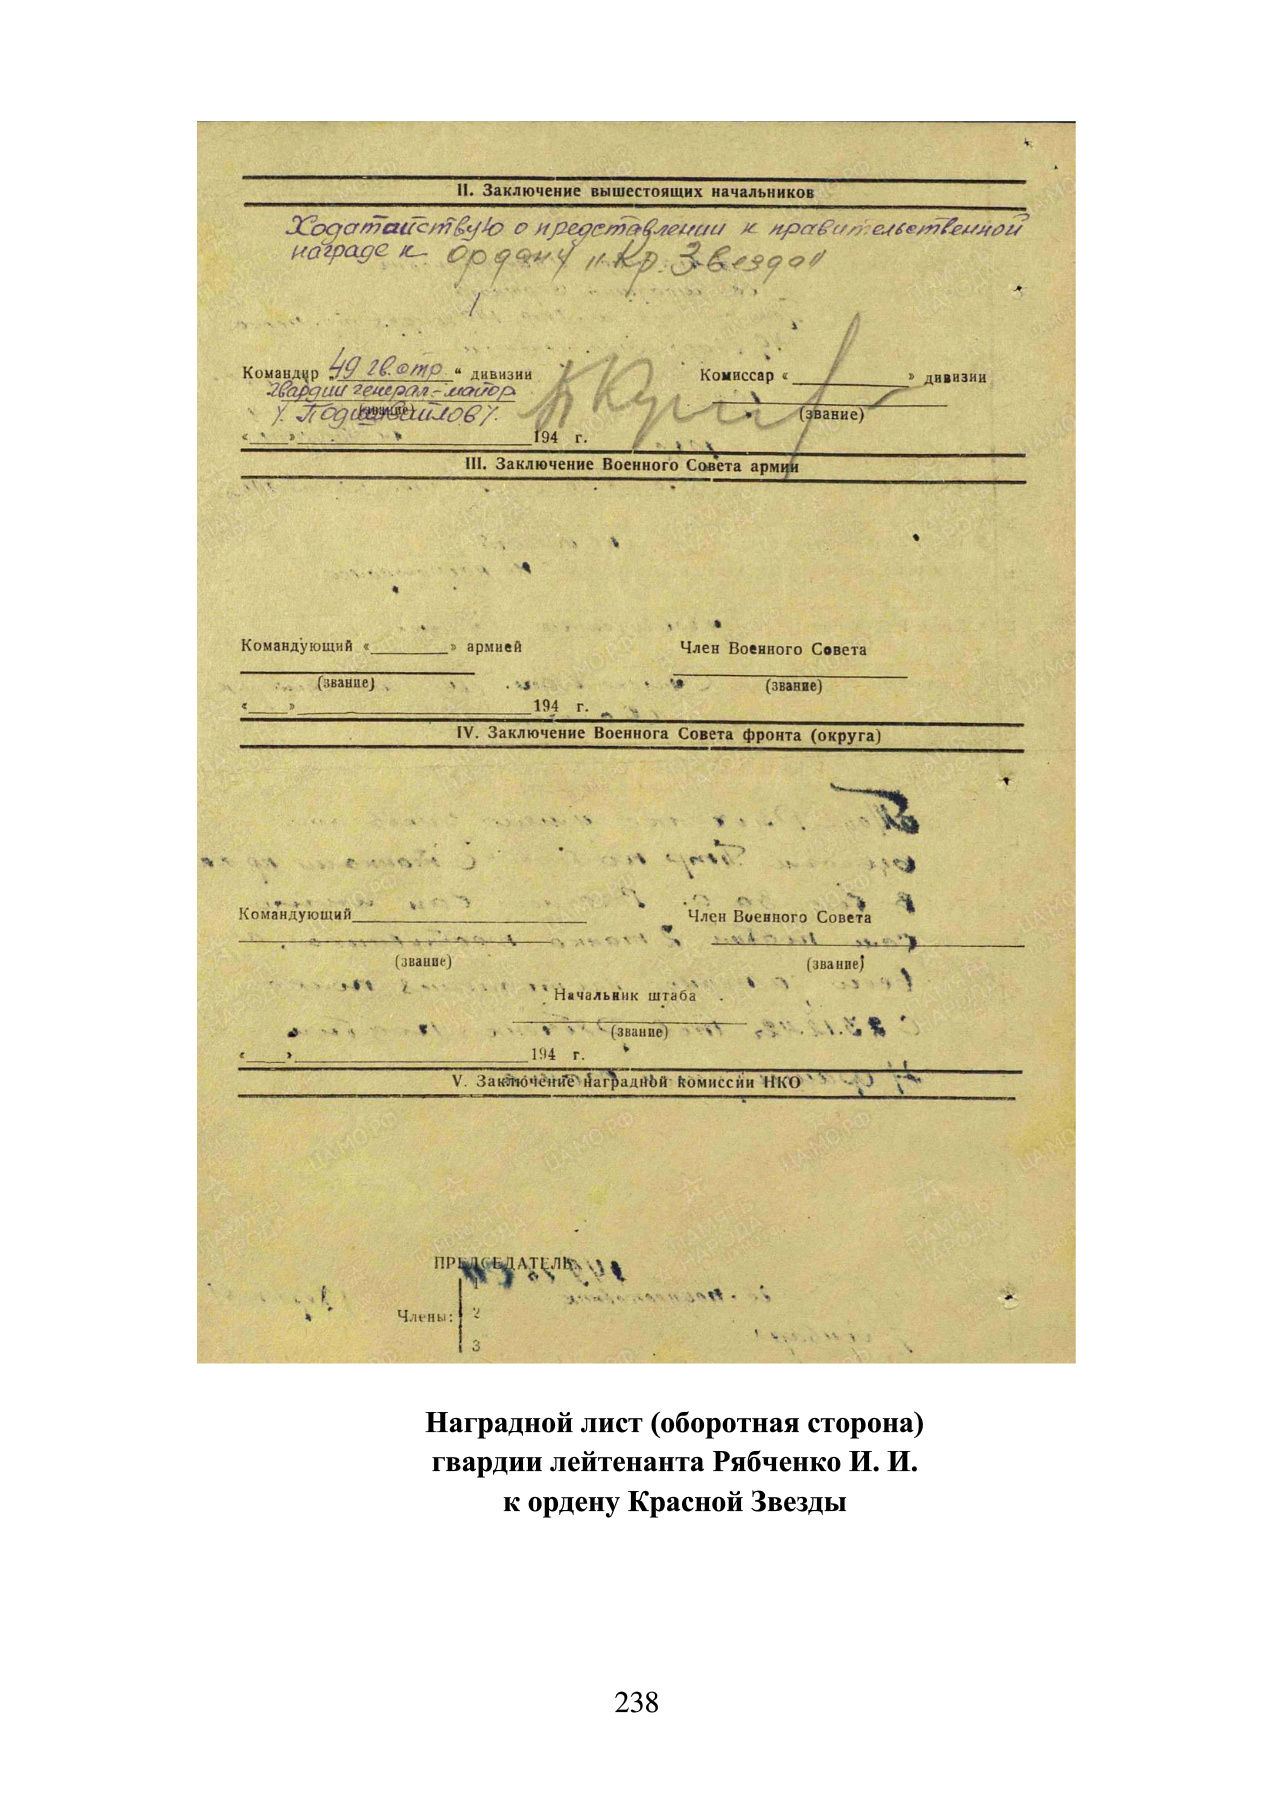 II. Заключение вышестоящих начальников
Ходатайствую о представлении к правительственной
награде к ордену "Кр. Звезда"
Командир 49 гв. отр. " дивизии
Комиссар «__________» дивизии
гвардии генерал-майор
(звание)
(звание)
/. Подшивайлов /.
«____»____________________194 г.
III. Заключение Военного Совета армии
Командующий «________» армией
Член Военного Совета
(звание)
(звание)
«____»____________________194 г.
IV. Заключение Военнога Совета фронта (округа)
Командующий____________________
Член Военного Совета
(звание)
(звание)
Начальник штаба
(звание)
«____»____________________194 г.
V. Заключение наградной комиссии НКО
ПРЕДСЕДАТЕЛЬ
1
Члены: 2
3
Наградной лист (оборотная сторона)
гвардии лейтенанта Рябченко И. И.
к ордену Красной Звезды
238